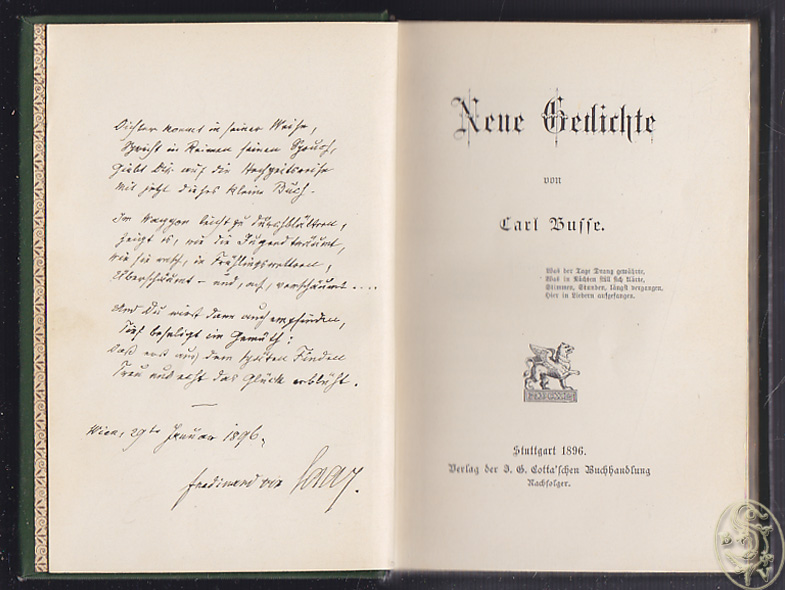 Dichter kommt in seiner Weise,
Spricht in Reimen seinen Spruch,
Giebt Dir auf die Hochzeitsreise
Mit jetzt dieses kleine Buch.
Im Waggon leicht zu durchblättern,
Zeigt es, wie die Jugend träumt,
Wie sie rasch, in Frühlingswettern,
Überschäumt – und, ach, verschäumt....
Und Du wirst dann auch empfinden,
Tief beseligt im Gemüth:
Daß erst aus dem späten Finden
Treu und echt das Glück erblüht.
Wien, 29te Januar 1896.
Ferdinand von Saar.
Neue Gedichte
von
Carl Busse.
Was der Tage Drang gewährte,
Was in Nächten still sich klärte,
Stimmen, Stunden, längst vergangen,
Hier in Liedern aufgefangen.
Stuttgart 1896.
Verlag der J. G. Cotta'schen Buchhandlung
Nachfolger.